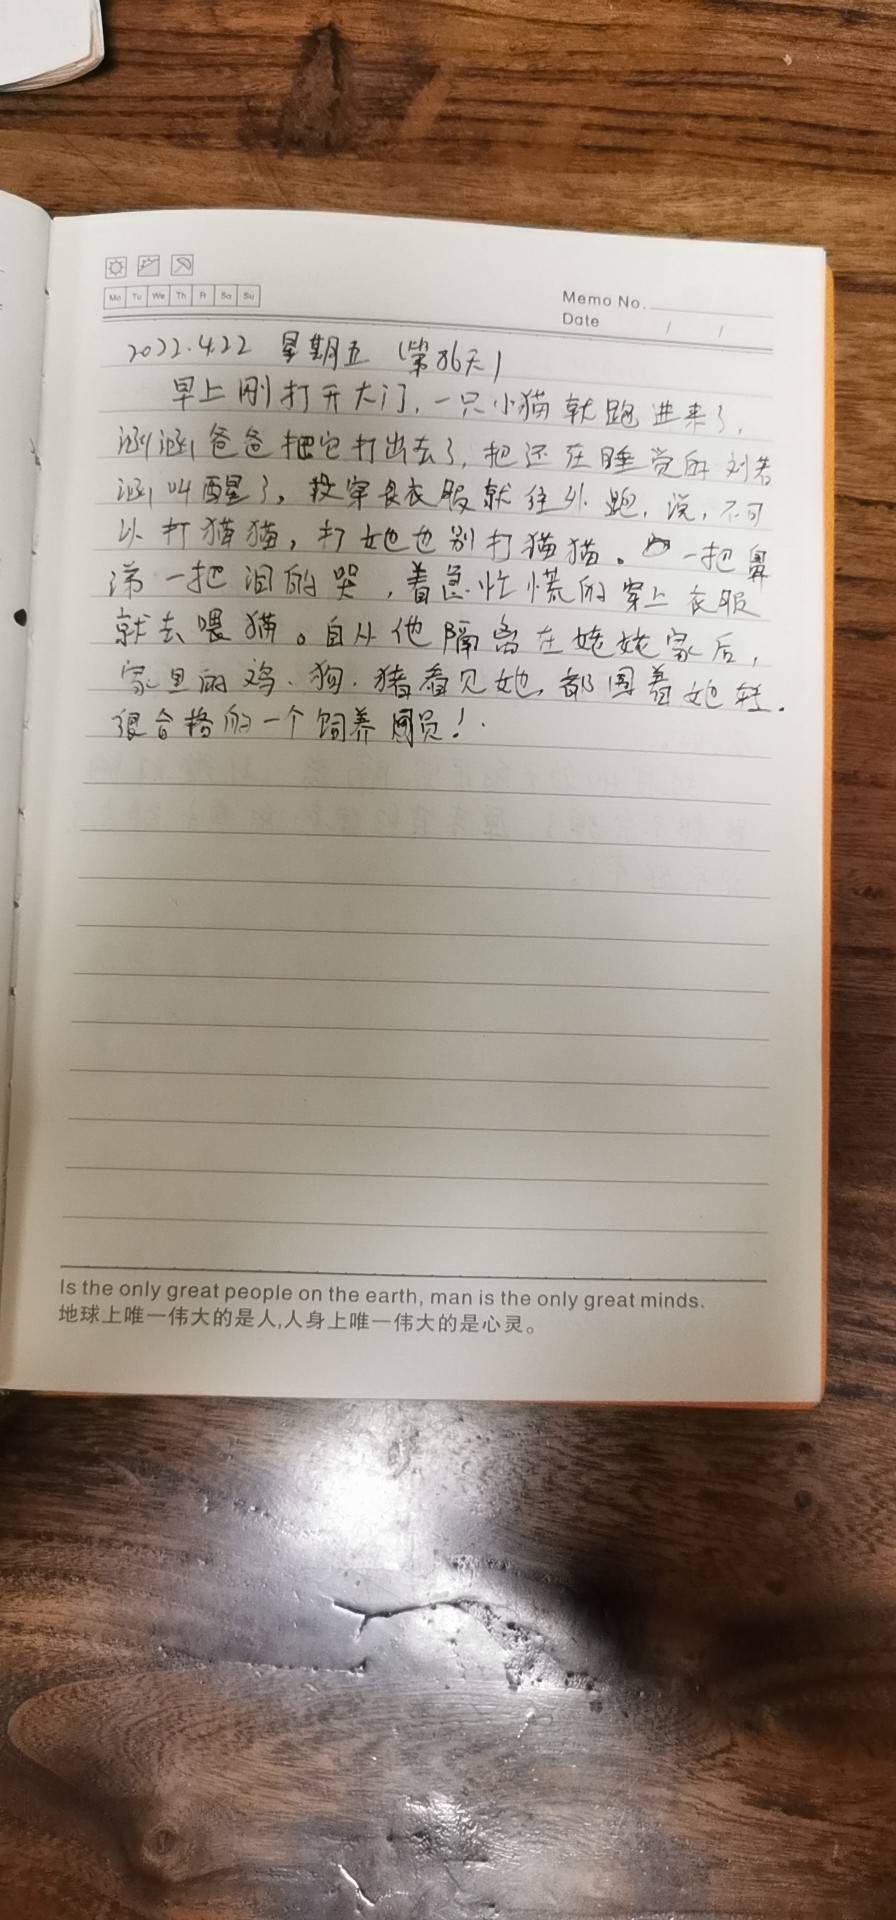 Mo Tu We Th Fr Sa Su
Memo No.
Date / /
2022.4.22 星期五 (第86天)
早上刚打开大门,一只小猫就跑进来了,
涵涵爸爸把它打出去了,把还在睡觉的刘若
涵叫醒了,没穿衣服就往外跑,说,不可
以打猫猫,打她也别打猫猫。一把鼻
涕一把泪的哭,着急忙慌的穿上衣服
就去喂猫。自从他隔离在姥姥家后,
家里的鸡、狗、猪看见她,都围着她转.
很合格的一个饲养员!.
Is the only great people on the earth, man is the only great minds.
地球上唯一伟大的是人,人身上唯一伟大的是心灵。